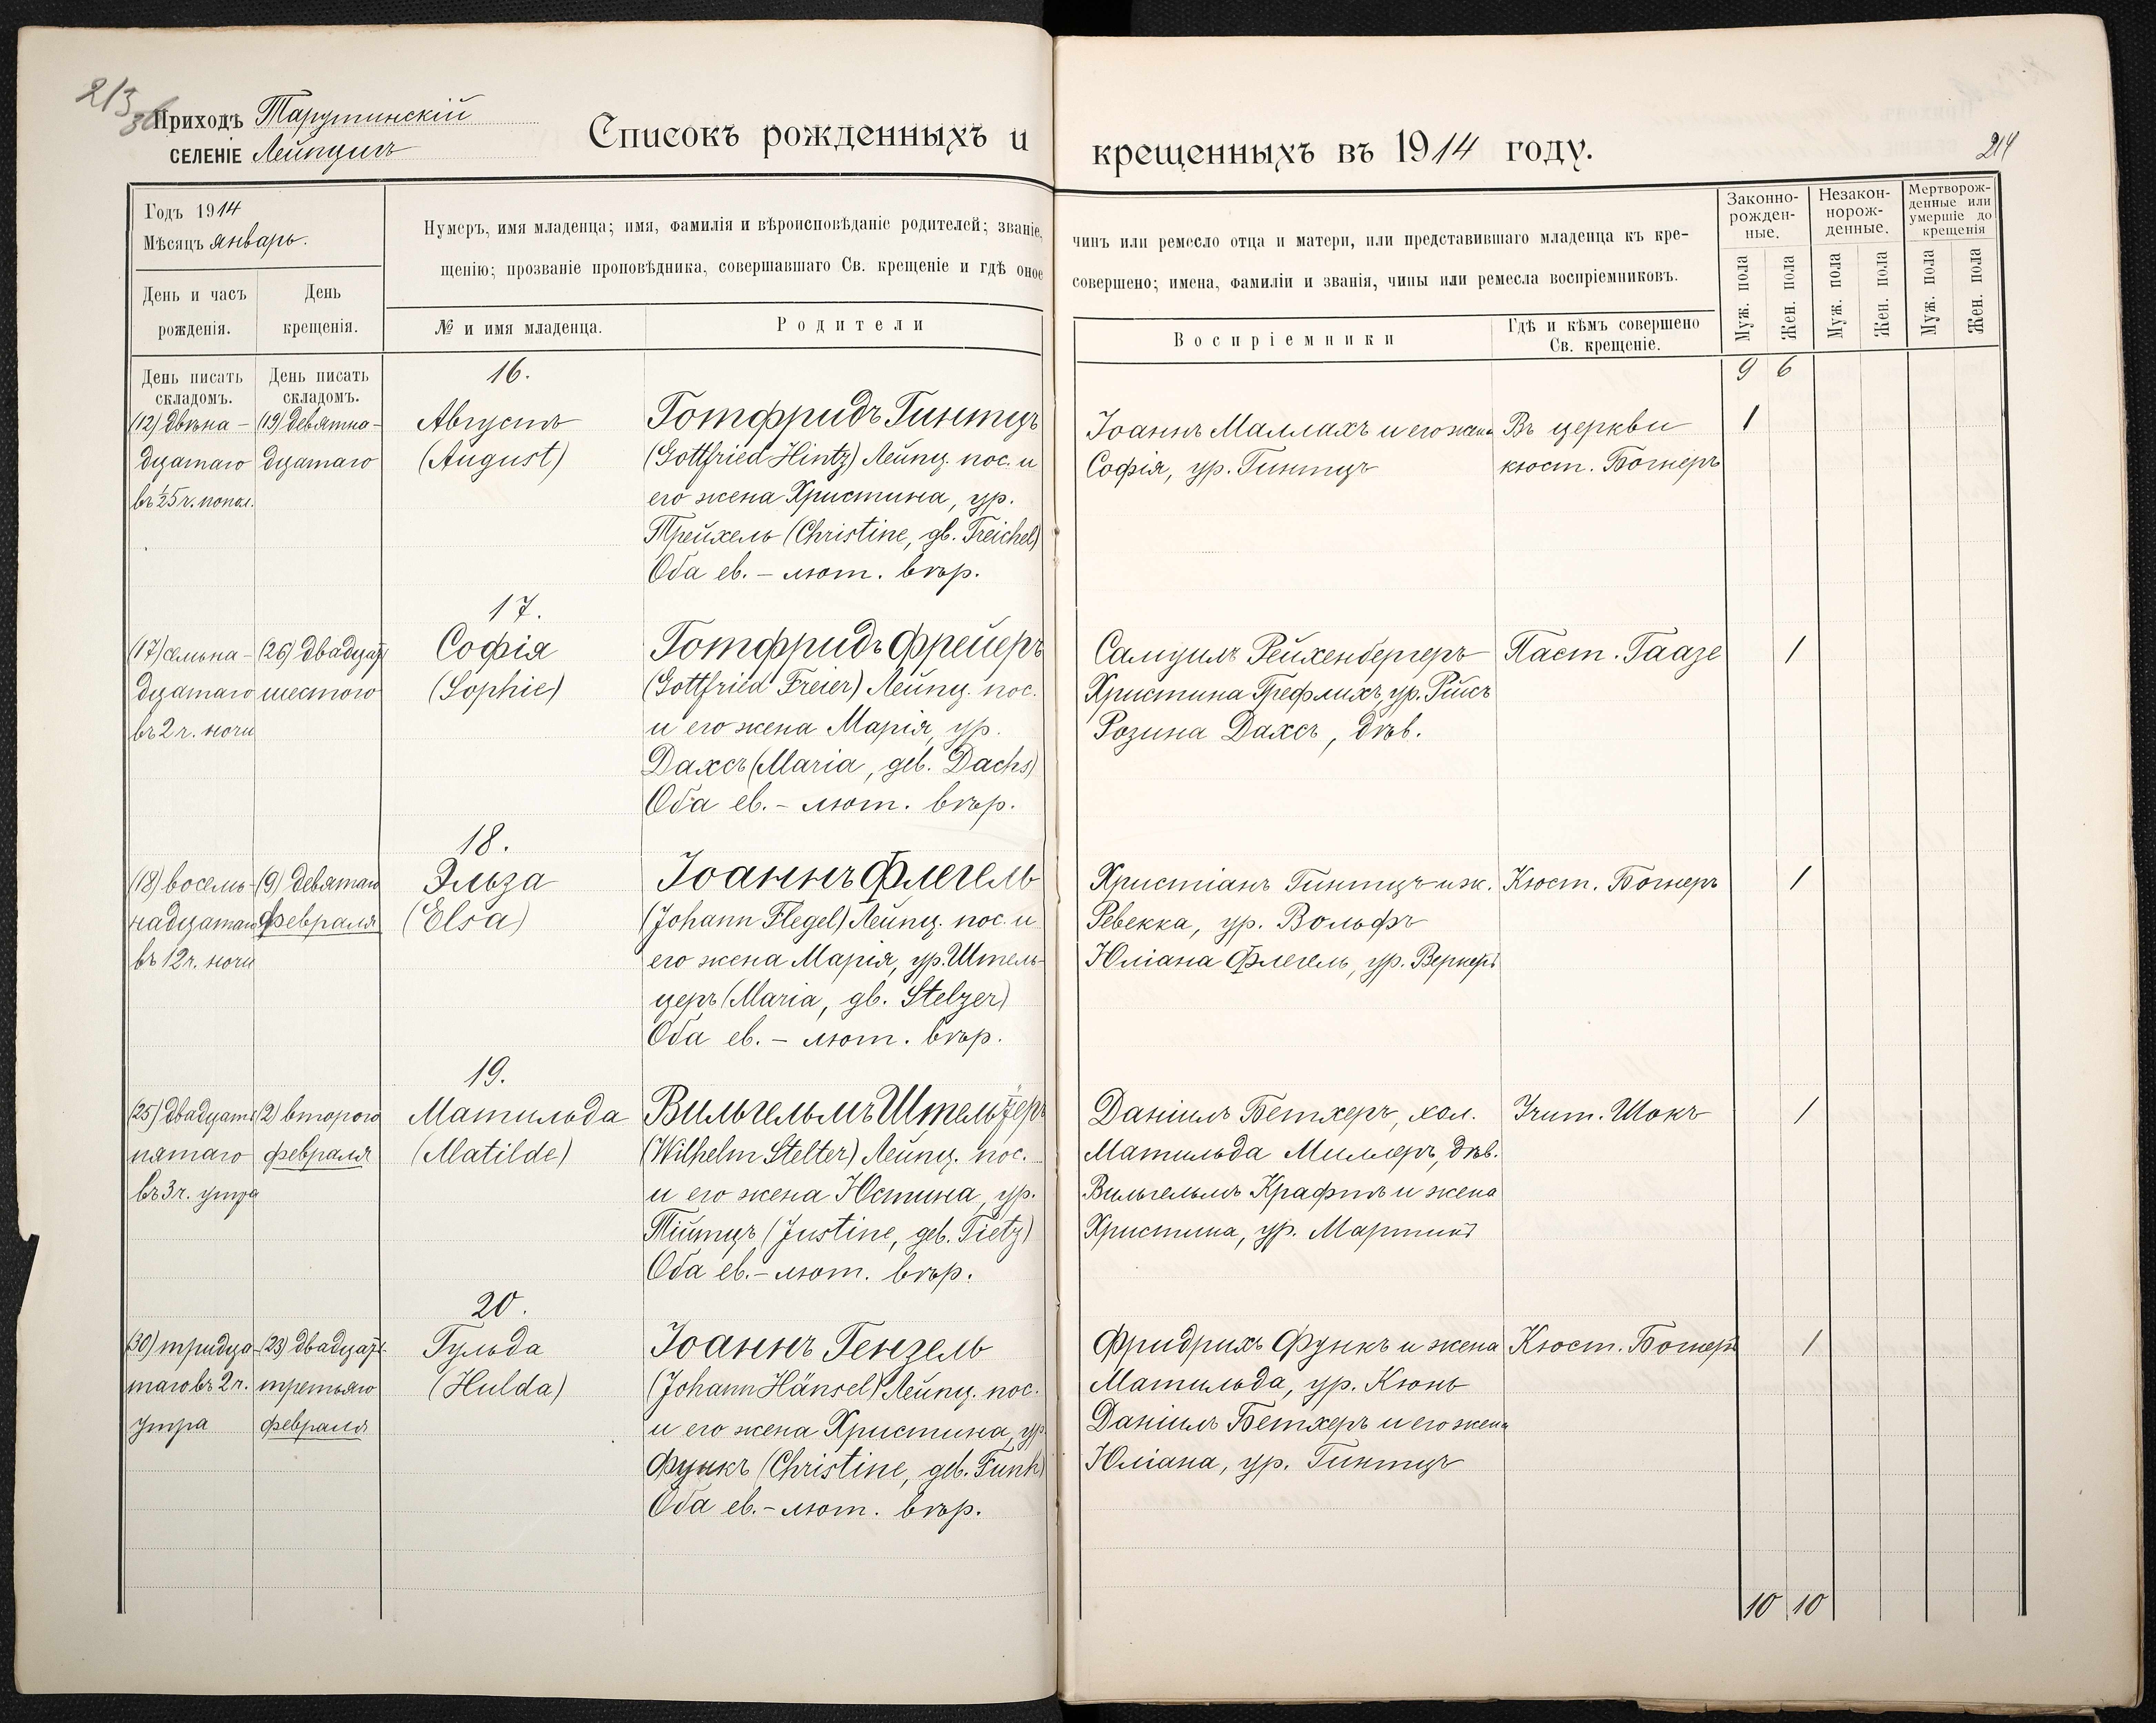 213
Приходъ Тарутинскій
СЕЛЕНІЕ Лейпцигъ
Списокъ рожденныхъ и
крещенныхъ въ 1914 году.
214
Годъ 1914
Мѣсяцъ январь.
День и часъ
рожденія.
День
крещенія.
Нумеръ, имя младенца; имя, фамилія и вѣроисповѣданіе родителей; званіе,
щенію; прозваніе проповѣдника, совершавшаго Св. крещеніе и гдѣ оное
№ и имя младенца.
Родители
чинъ или ремесло отца и матери, или представившаго младенца къ кре-
совершено; имена, фамиліи и званія, чины или ремесла воспріемниковъ.
Воспріемники
Гдѣ и кѣмъ совершено
Св. крещеніе.
Законно-
рожден-
ные.
Незакон-
норож-
денные.
Мертворож-
денные или
умершіе до
крещенія
Муж. пола
Жен. пола
Муж. пола
Жен. пола
Муж. пола
Жен. пола
День писать
складомъ.
День писать
складомъ.
9 6
16.
(12) двѣна-
дцатаго
въ ½5 ч. попол.
(19) девятна-
дцатаго
Августъ
(August)
Готфридъ Гинтцъ
(Gottfried Hintz) Лейпц. пос. и
его жена Христина, ур.
Трейхель (Christine, gb. Treichel)
Оба ев. - лют. вѣр.
Іоаннъ Маллахъ и его жена
Софія, ур. Гинтцъ
Въ церкви
кюст. Богнеръ
1
17.
(17) семьна-
дцатаго
въ 2 ч. ночи
(26) двадцать
шестого
Софія
(Sophie)
Готфридъ Фрейеръ
(Gottfried Freier) Лейпц. пос.
и его жена Марія, ур.
Даксъ (Maria, geb. Dachs)
Оба ев. - лют. вѣр.
Самуилъ Рейхенбергеръ
Христина Грефлихъ, ур. Рйсъ
Розина Даксъ, дѣв.
Паст. Гаазе
1
18.
(18) восемь-
надцатаго
въ 12 ч. ночи
(9) девятаго
февраля
Эльза
(Elsa)
Іоаннъ Флегель
(Johann Flegel) Лейпц. пос. и
его жена Марія, ур. Штель-
церъ (Maria, gb. Stelzer)
Оба ев. - лют. вѣр.
Христіанъ Гинтцъ и ж.
Ревекка, ур. Вольфъ
Юліана Флегель, ур. Вернеръ
Кюст. Богнеръ
1
19.
(25) двадцать
пятаго
въ 3 ч. утра
(2) второго
февраля
Матильда
(Matilde)
Вильгельмъ Штельтеръ
(Wilhelm Stelter) Лейпц. пос.
и его жена Юстина, ур.
Тійтцъ (Justine, geb. Tietz)
Оба ев. - лют. вѣр.
Даніилъ Бетхеръ, хол.
Матильда Миллеръ, дѣв.
Вильгельмъ Крафтъ и жена
Христина, ур. Мартинъ
Учит. Шокъ
1
20.
(30) тридца-
таго въ 2 ч.
утра
(23) двадцать
третьяго
февраля
Гульда
(Hulda)
Іоаннъ Гензель
(Johann Hänsel) Лейпц. пос.
и его жена Христина, ур.
Функъ (Christine, geb. Funk)
Оба ев. - лют. вѣр.
Фридрихъ Функъ и жена
Матильда, ур. Кюнь
Даніилъ Бетхеръ и его жена
Юліана, ур. Гинтцъ
Кюст. Богнеръ
1
10 10